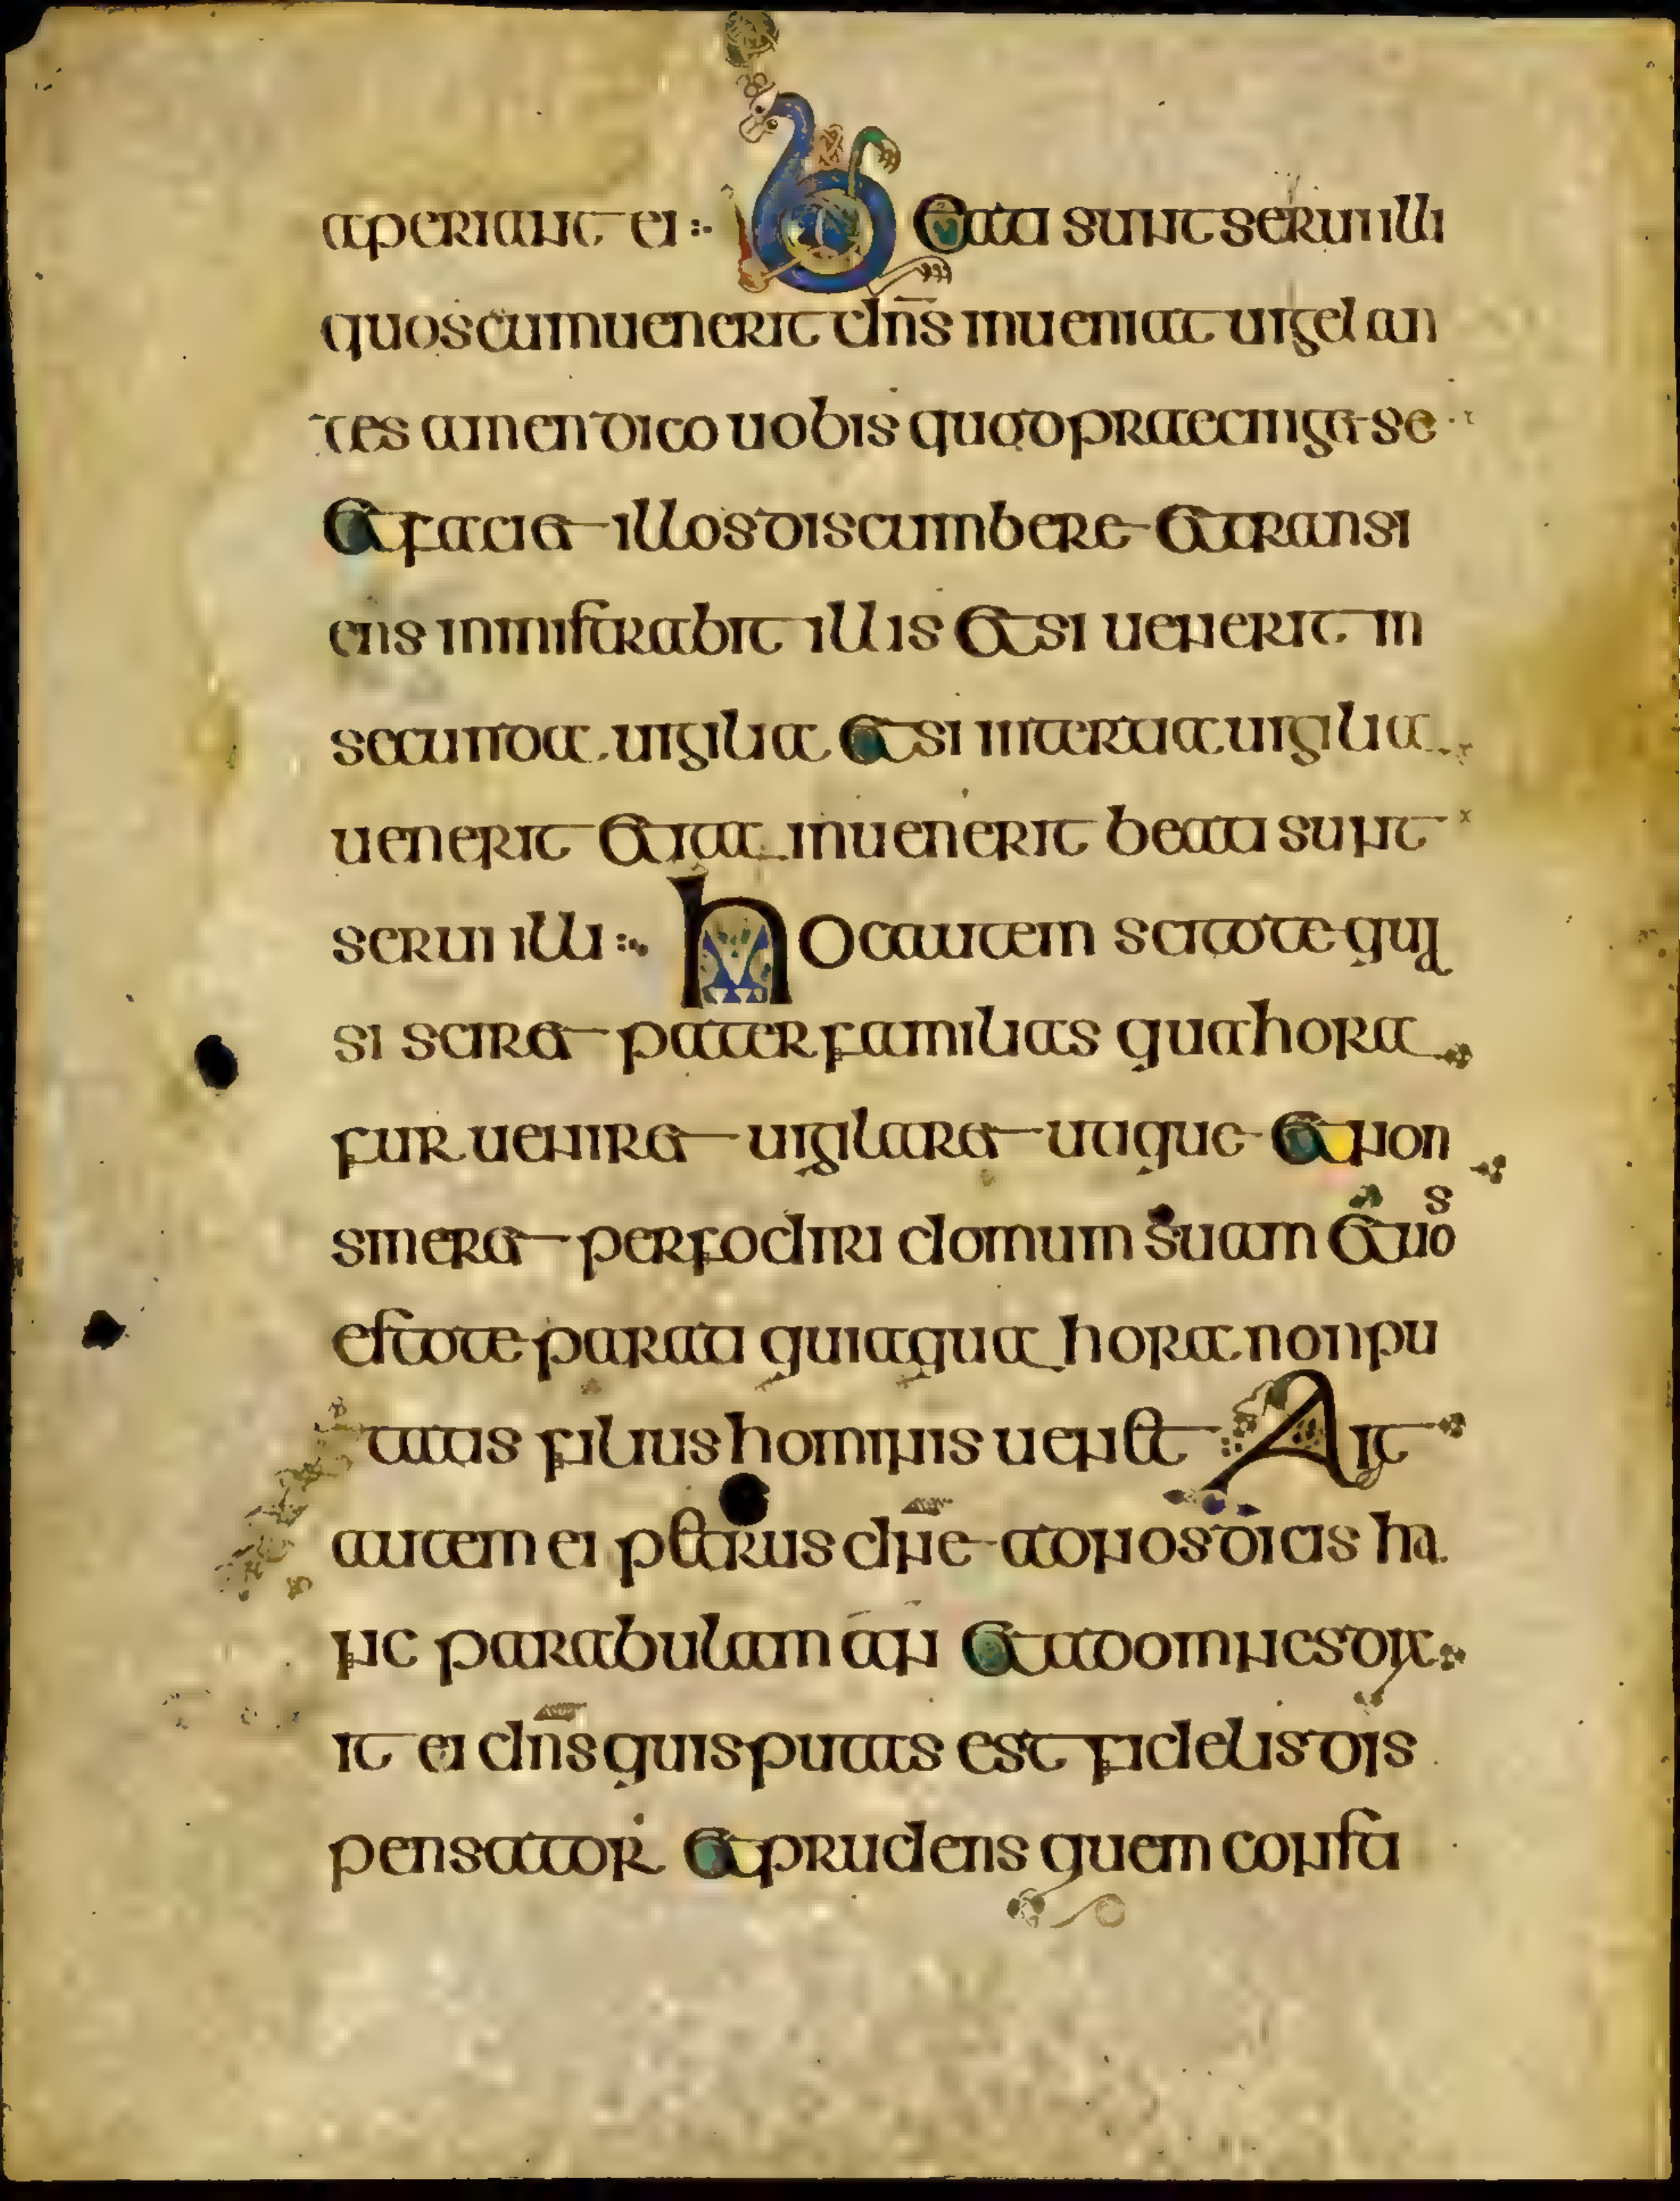 aperiant ei Beati sunt serui illi
quos cum uenerit dns inueniat uigelan
tes amen dico uobis quod praecinget se
et faciet illos discumbere et transi
ens inministrabit illis et si uenerit in
secunda uigilia et si in tertia uigilia
uenerit et ita inuenerit beati sunt
serui illi hoc autem scitote qui
si sciret pater familias qua hora
fur ueniret uigilaret utique et non
sineret perfodiri domum suam et uos
estote parati quia qua hora non pu
tatis filius hominis ueniet Ait
autem ei petrus dne ad nos dicis ha
nc parabulam an et ad omnes dix
it ei dns quis putas est fidelis dis
pensator et prudens quem consti